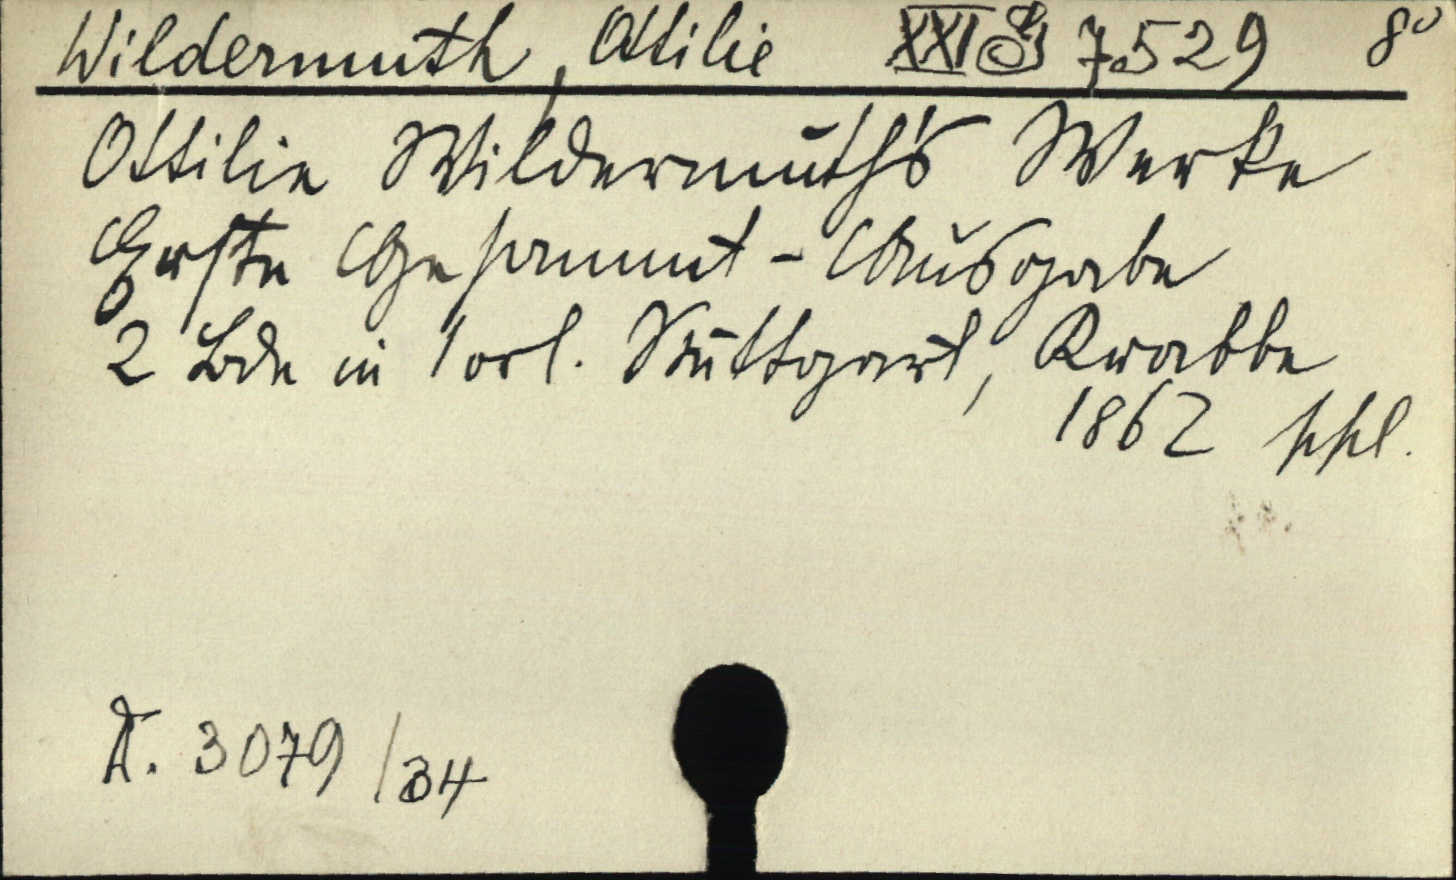 Wildermuth, Ottilie XXI 7.529 8°
Ottilie Wildermuth's Werke
Erste Gesammt-Ausgabe
2 Bde in 1 vol. Stuttgart, Krabbe
1862
A. 3079/34